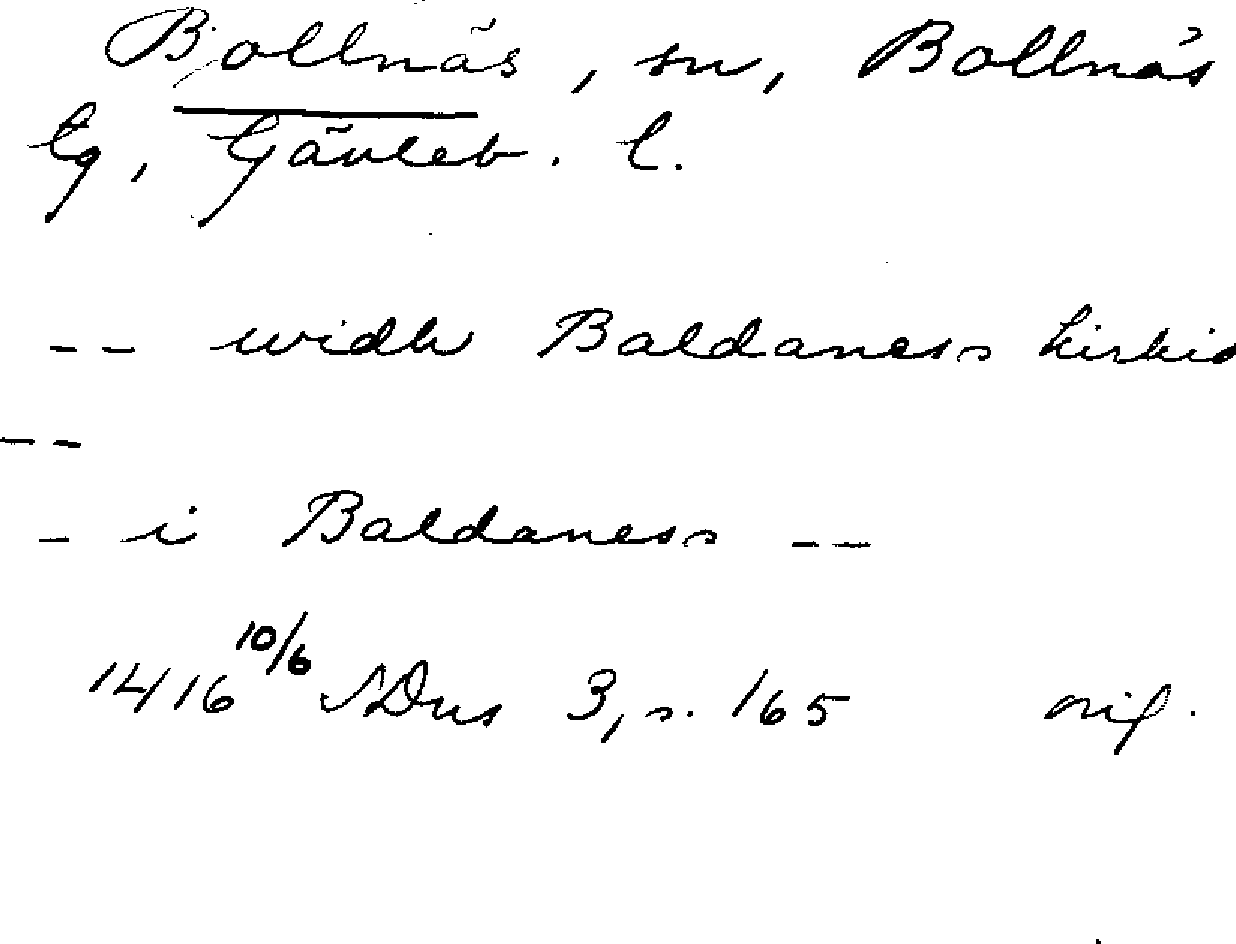 Bollnäs, sn, Bollnäs
tg, Gävleb. l.
-- widh Baldaness kirkio
--
- i Baldaness --
1416 10/6 SDns 3, s. 165 orig.